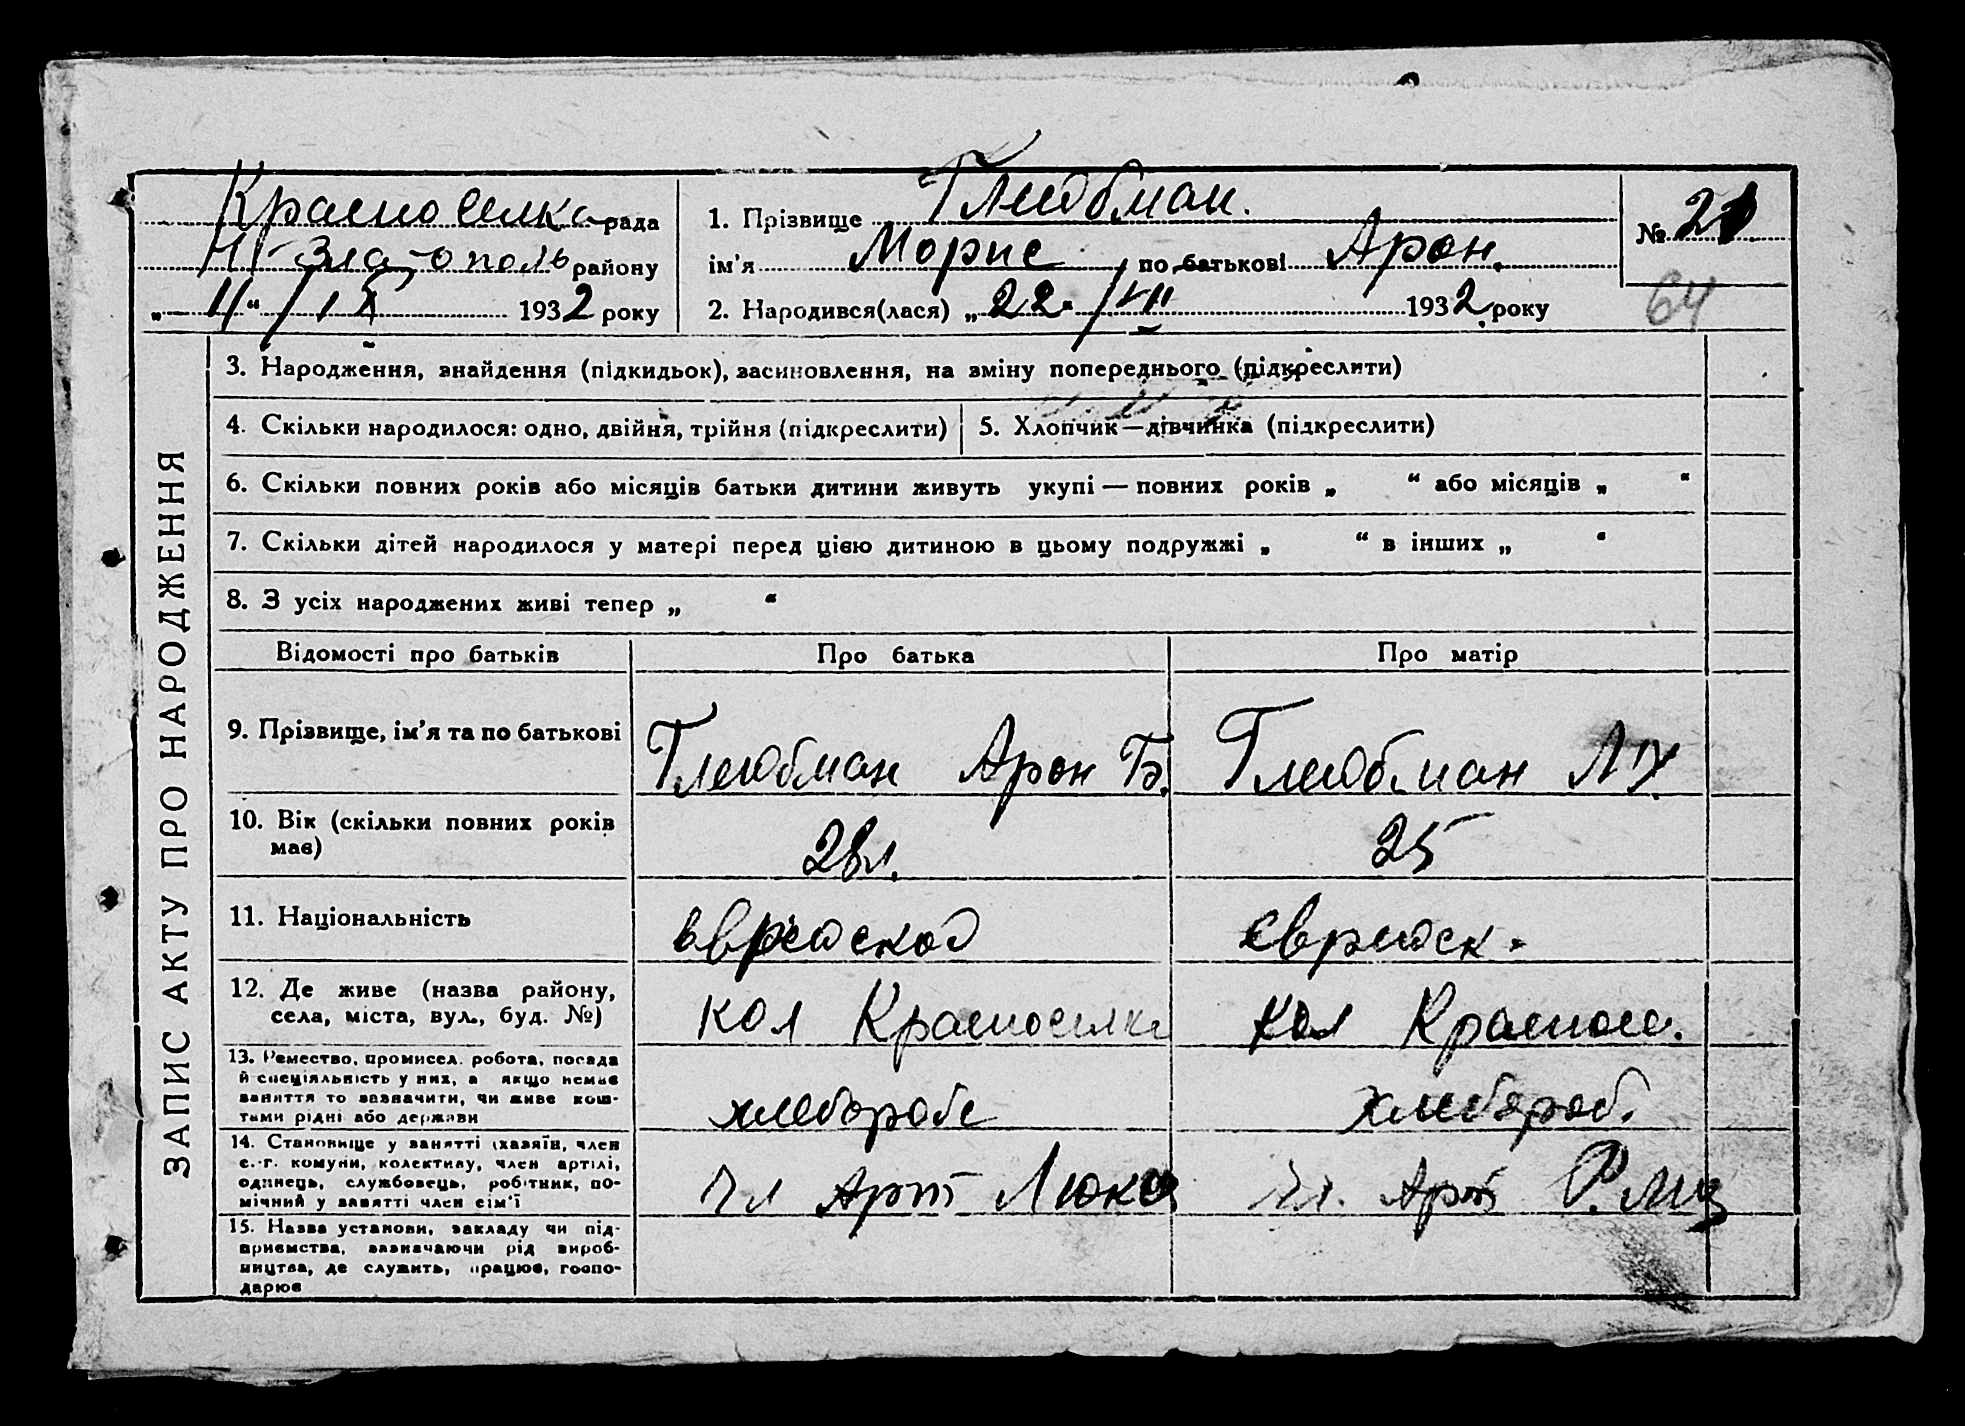 Красноселка рада
Н-Златополь району
„ 11 “ / IX 1932 року
1. Прізвище Глейбман.
ім’я Морис по батькові Арон.
2. Народився(лася) „ 22. / VII 1932 року
№ 21
64
ЗАПИС АКТУ ПРО НАРОДЖЕННЯ
3. Народження, знайдення (підкидьок), засиновлення, на зміну попереднього (підкреслити)
4. Скільки народилося: одно, двійня, трійня (підкреслити)
5. Хлопчик — дівчинка (підкреслити)
6. Скільки повних років або місяців батьки дитини живуть укупі — повних років „ “ або місяців „ “
7. Скільки дітей народилося у матері перед цією дитиною в цьому подружжі „ “ в інших „ “
8. З усіх народжених живі тепер „ “
Відомості про батьків
Про батька
Про матір
9. Прізвище, ім’я та по батькові
Глейбман Арон Б.
Глейбман
10. Вік (скільки повних років
має)
28 л.
25
11. Національність
еврейской
еврейск.
12. Де живе (назва району,
села, міста, вул., буд. №)
кол Красноселке
кол Красносе.
13. Ремество, промисел, робота, посада
й спеціяльність у них, а якщо немає
заняття то зазначити, чи живе кош-
тами рідні або держави
хлебороб
хлебороб.
14. Становище у занятті (хазяїн, член
с.-г. комуни, колективу, член артілі,
одинець, службовець, робітник, по-
мічний у занятті член сім’ї
Чл Арт
Чл. Арт
15. Назва установи, закладу чи під-
приємства, зазначаючи рід вироб-
ництва, де служить, працює, госпо-
дарює